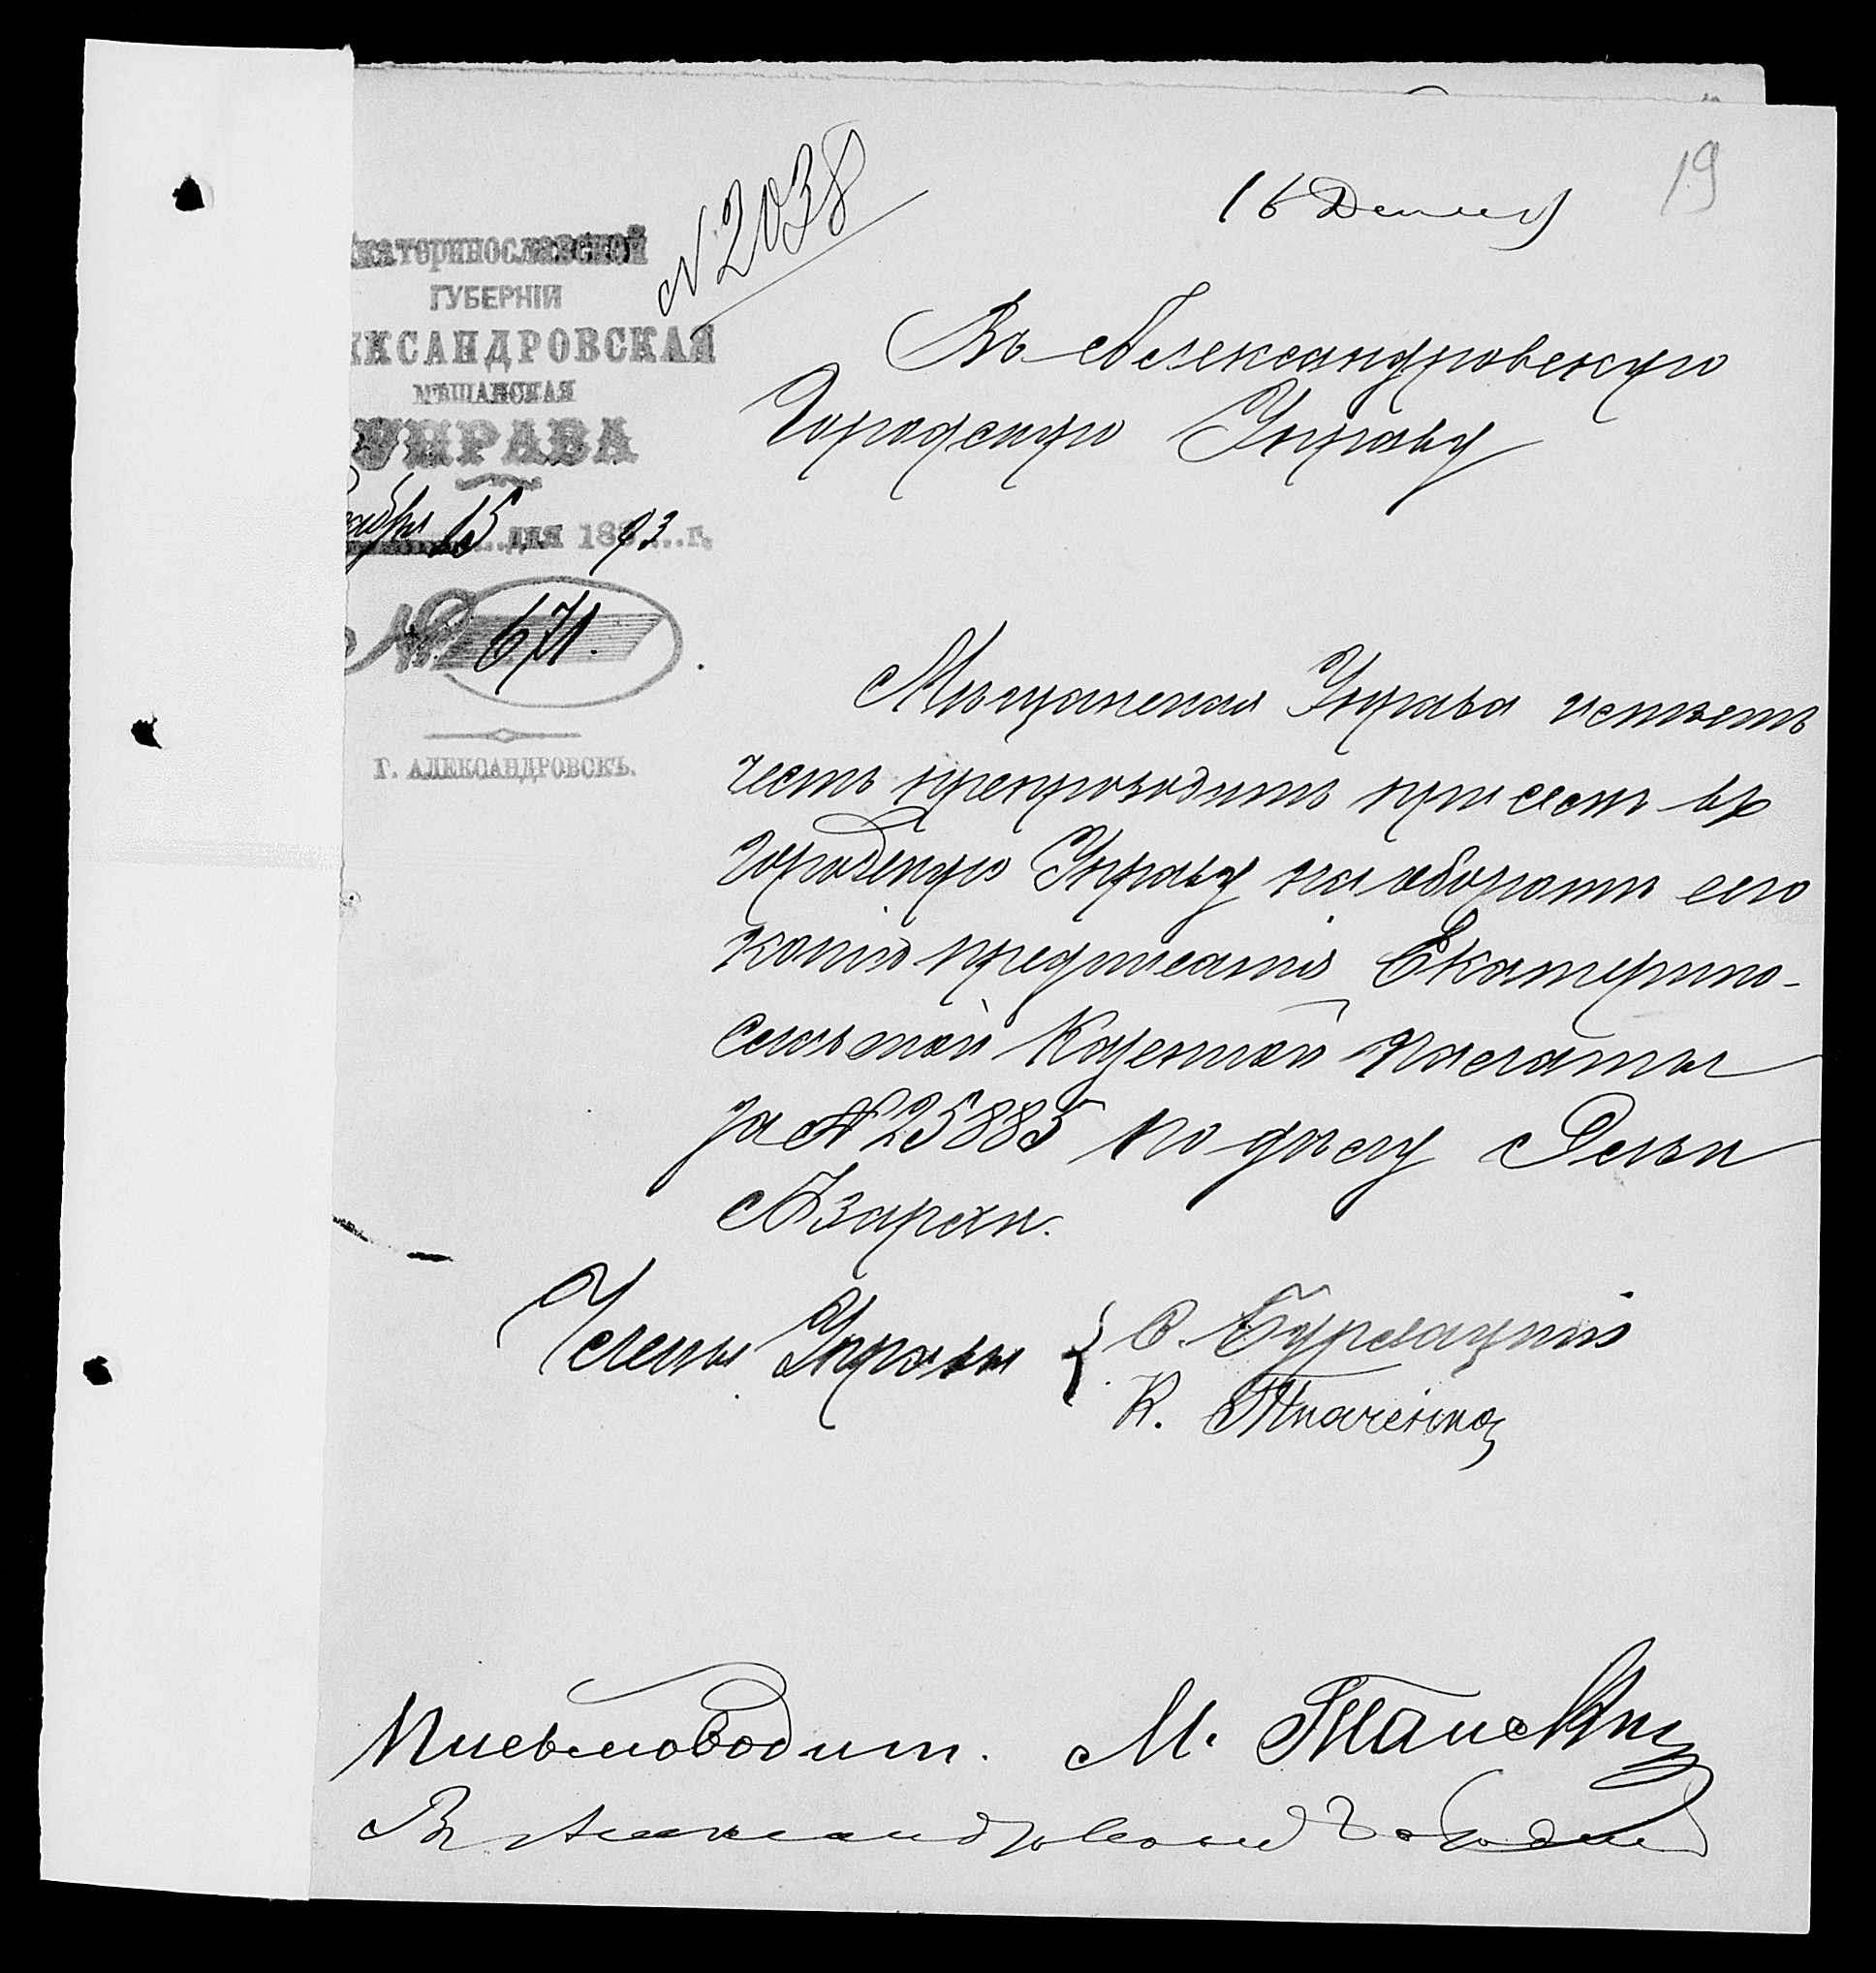 19
16 Декабр
№ 2038
Екатеринославской
ГУБЕРНІИ
АЛЕКСАНДРОВСКАЯ
МѢЩАНСКАЯ
УПРАВА
декабря 15 дня 1893 г.
№ 671.
Г. АЛЕКСАНДРОВСКЪ.
Въ Александровскую
Городскую Управу
Мѣщанская Управа имѣетъ
честь препроводить при семъ въ
Городскую Управу на оборотѣ сего
копію предписанія Екатерино-
славской Казенной палаты
за № 25885 по дѣлу
Азархи.
Члены Управы { С. Бурлацкій
К. Ткаченко
Письмоводит. М.
Въ Александровской Городск